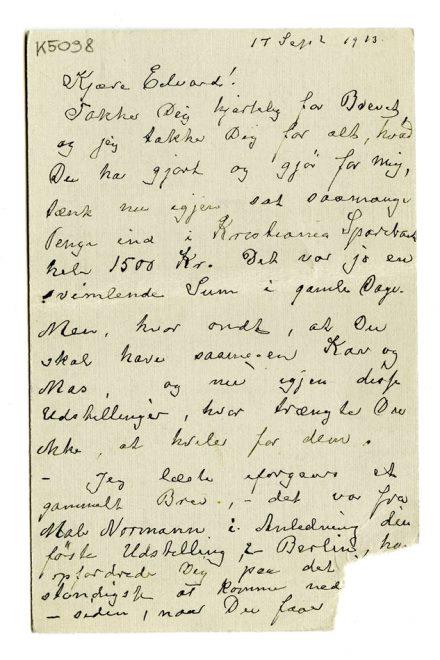 K5098
17 Sept 1913.
Kjære Edvard!
Takker Dig hjertelig for Brevet,
og jeg takke Dig for alt, hvad
Du ha gjort og gjør for mig,
tænk nu igjen sat saamange
Penge ind i Kristiania Sparebank
hele 1500 Kr. Det var jo en
svimlende Sum i gamle Dage.
Men, hvor ondt, at Du
skal have saamegen Kav og
Mas, og nu igjen disse
Udstillinger, hvor trængte Du
ikke, at hvile for dem.
– Jeg læste iforgaars et
gammelt Brev, – det var fra
Mal Normann i Anledning din
føste Udstilling i Berlin, ha
opfordrede Dig paa det
standigste at komme ned
– siden, naar Du faar